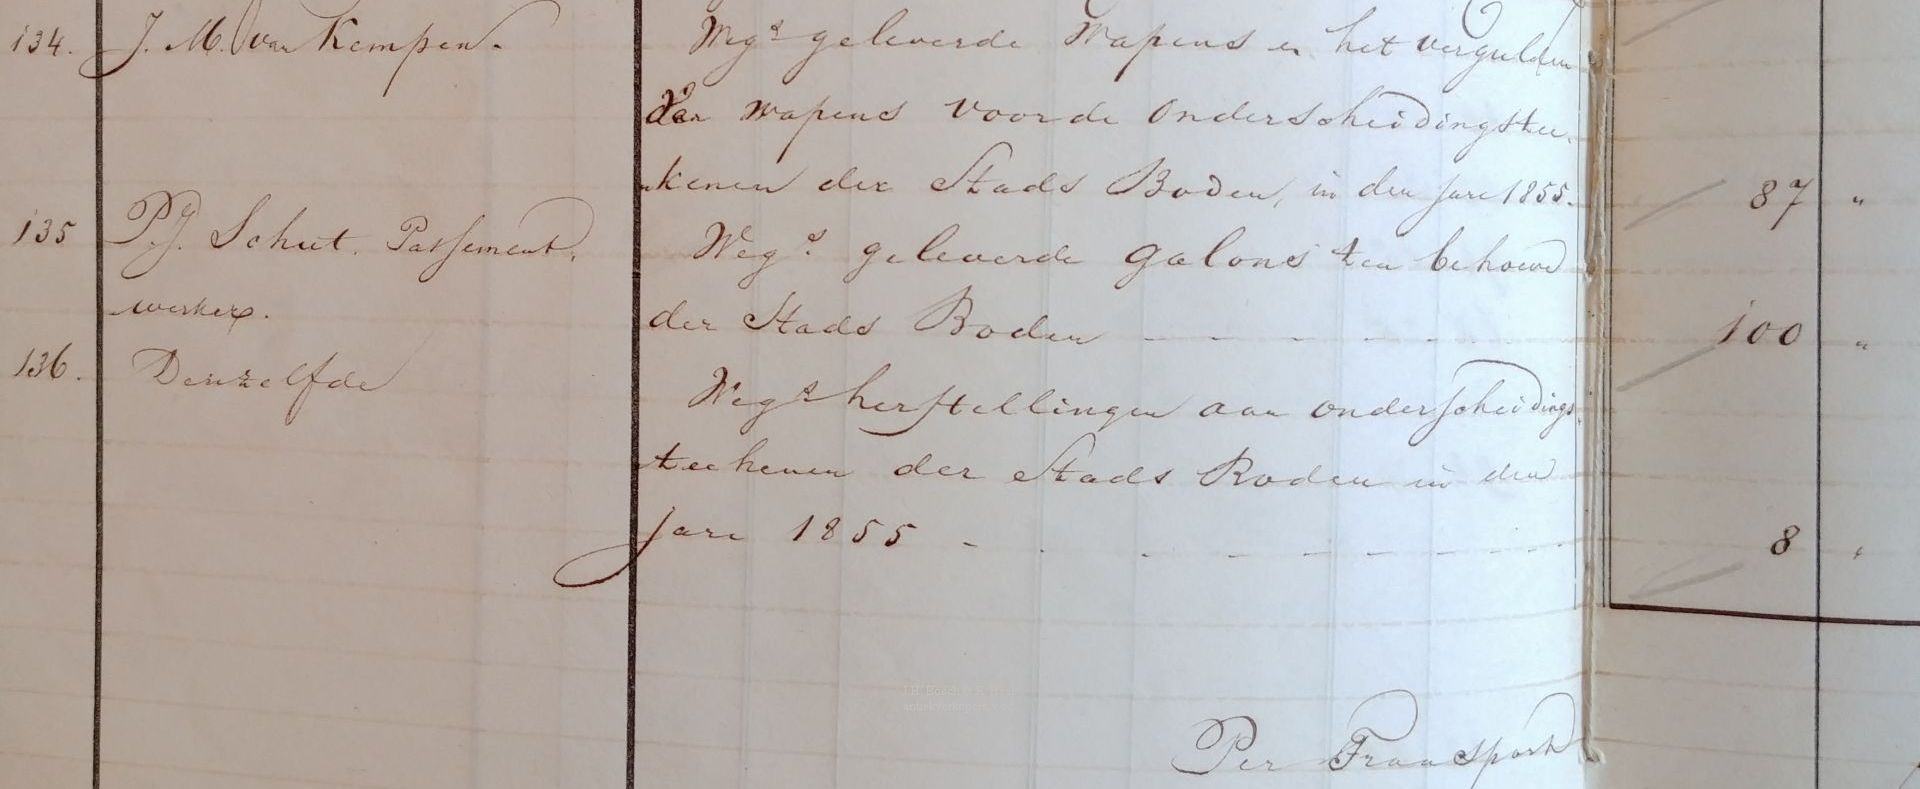 134. J. M. van Kempen. Weg.s geleverde wapens en het vergulden
van wapens voor de onderscheidingstee-
kenen der Stads Boden, in den jare 1855. 87 "
135 P.J. Schut. Passement. Weg.s geleverde galons ten behoeve
werker. der Stads Boden - - - - - - 100 "
136. Denzelfde Weg.s herstellingen aan onderscheidings
teekenen der Stads Boden in den
jare 1855 - - - - - - - 8 "
Per Transport